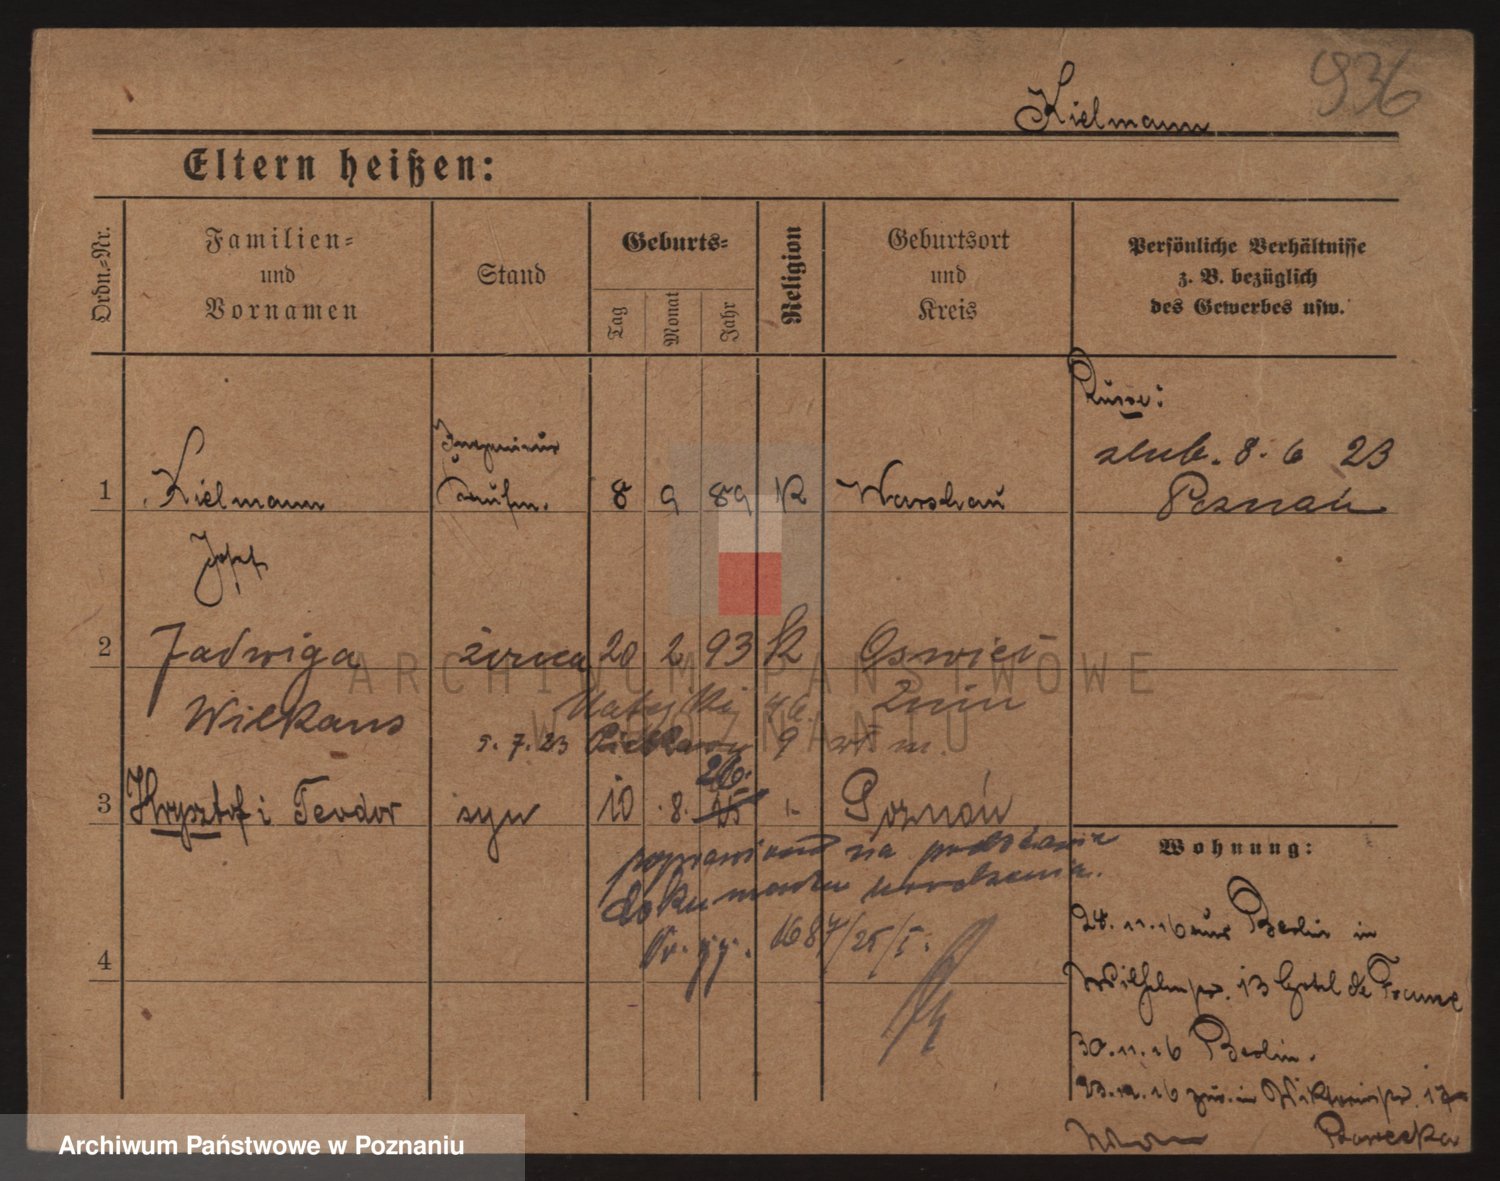 936
Kielmann
Eltern heißen:
Ordn.=Nr.
Familien=
und
Vornamen
Stand
Geburts=
Tag
Monat
Jahr
Religion
Geburtsort
und
Kreis
Persönliche Verhältnisse
z. B. bezüglich
des Gewerbes usw.
Russe:
ślub. 8. 6 23
Poznań
Ingenieur
1 Kielmann Kaufm. 8 9 89 K Warschau
Josef
2 Jadwiga żona 20 2 93 K
Wilkans Matejki Żnin
5. 7. 23 9
26.
3 Krysztof i Teodor syn 10 8. 25 Poznań
poprawiono na podstawie
dokumentu urodzenia.
1687/25/I.
4
Wohnung:
24. 11. 16 aus Berlin in
Wilhelmpl. 13 Hotel de France
30. 11. 16 Berlin.
23. 12. 16 zur. in Viktoriastr. 17
ARCHIWUM PAŃSTWOWE
W POZNANIU
Archiwum Państwowe w Poznaniu